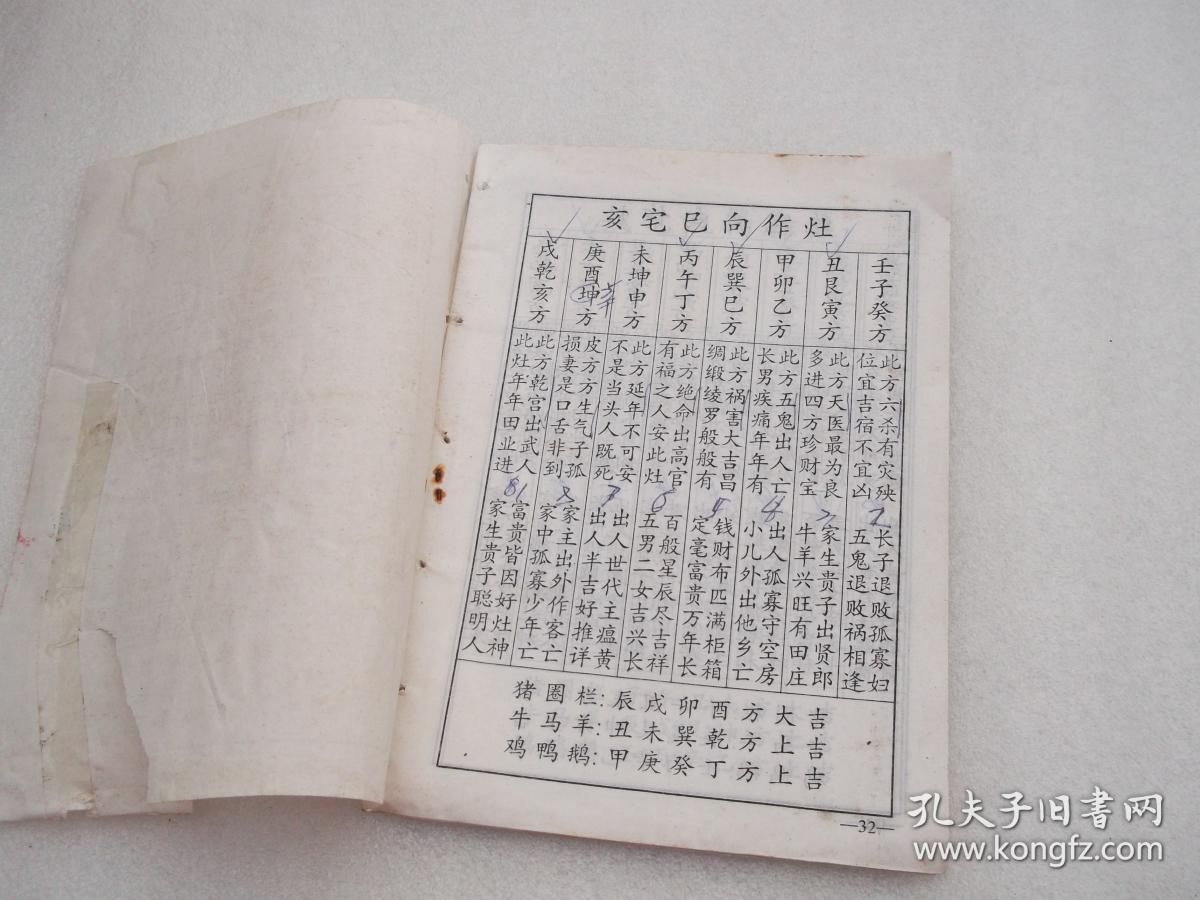 亥宅巳向作灶
壬子癸方
此方六杀有灾殃
位宜吉宿不宜凶
2
长子退败孤寡妇
五鬼退败祸相逢
丑艮寅方
此方天医最为良
多进四方珍财宝
家生贵子出贤郎
牛羊兴旺有田庄
甲卯乙方
此方五鬼出人亡
长男疾痛年年有
4
出人孤寡守空房
小儿外出他乡亡
辰巽巳方
此方祸害大吉昌
绸缎绫罗般般有
钱财布匹满柜箱
定毫富贵万年长
丙午丁方
此方绝命出高官
有福之人安此灶
6
百般星辰尽吉祥
五男二女吉兴长
未坤申方
此方延年不可安
不是当头人既死
7
出人世代主瘟黄
出人半吉好推详
庚酉坤方
辛
皮方方生气子孤
损妻是口舌非到
8
家主出外作客亡
家中孤寡少年亡
戌乾亥方
此方乾宫出武人
此灶年年田业进
81
富贵皆因好灶神
家生贵子聪明人
猪圈栏:辰戌卯酉方大吉
牛马羊:丑未巽乾方上吉
鸡鸭鹅:甲庚癸丁方上吉
—32—
孔夫子旧書网
www.kongfz.com